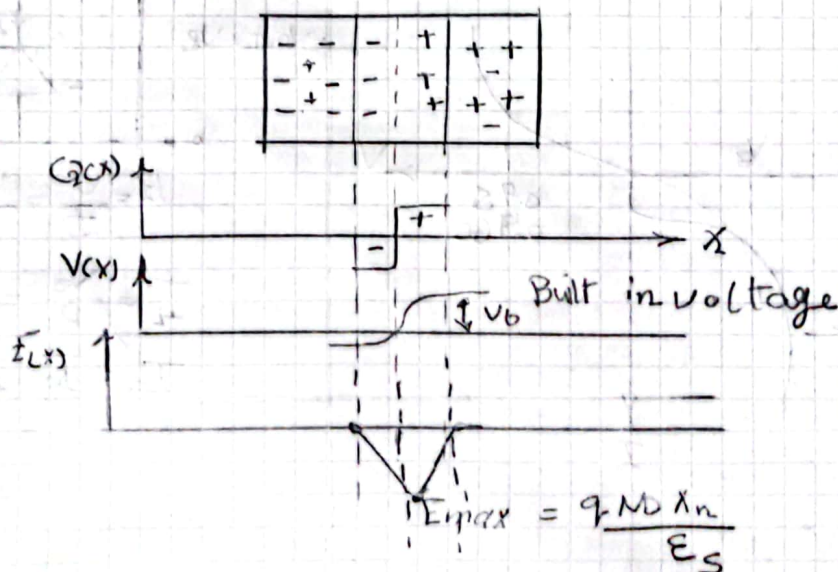 Q(x)
X
V(x)
Vb Built in voltage
E(x)
Emax = q ND Xn
εs